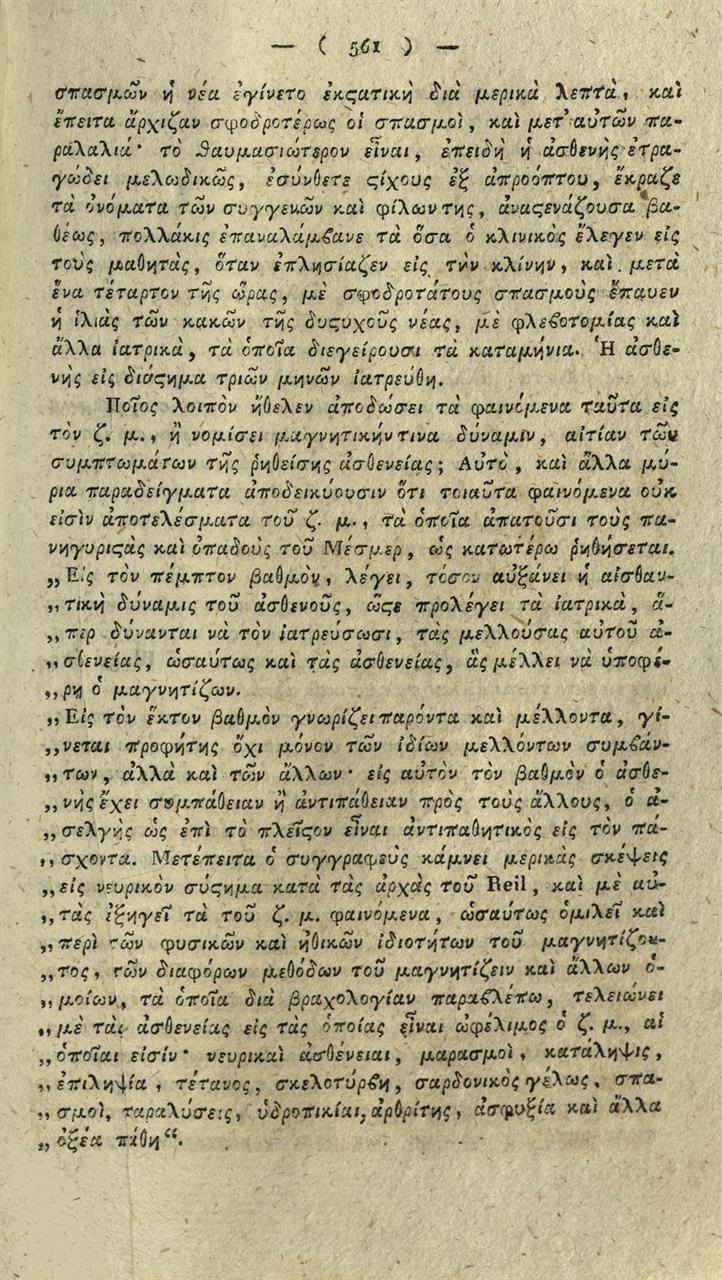 — ( 561 ) —
σπασμῶν ἡ νέα ἐγίνετο ἐκϛατικὴ διὰ μερικὰ λεπτὰ, καὶ
ἔπειτα ἄρχιζαν σφοδροτέρως οἱ σπασμοὶ, καὶ μετ' αὐτῶν πα-
ραλαλιά· τὸ θαυμασιώτερον εἶναι, ἐπειδὴ ἡ ἀσθενὴς ἐτρα-
γῴδει μελωδικῶς, ἐσύνθετε ϛίχους ἐξ ἀπροόπτου, ἔκραζε
τὰ ὀνόματα τῶν συγγενῶν καὶ φίλων της, ἀναϛενάζουσα βα-
θέως, πολλάκις ἐπαναλάμβανε τὰ ὅσα ὁ κλινικὸς ἔλεγεν εἰς
τοὺς μαθητὰς, ὅταν ἐπλησίαζεν εἰς τὴν κλίνην, καὶ μετὰ
ἕνα τέταρτον τῆς ὥρας, μὲ σφοδροτάτους σπασμοὺς ἔπαυεν
ἡ ἰλιὰς τῶν κακῶν τῆς δυϛυχοῦς νέας, μὲ φλεβοτομίας καὶ
ἄλλα ἰατρικὰ, τὰ ὁποῖα διεγείρουσι τὰ καταμήνια. Ἡ ἀσθε-
νὴς εἰς διάϛημα τριῶν μηνῶν ἰατρεύθη.
Ποῖος λοιπὸν ἤθελεν ἀποδώσει τὰ φαινόμενα ταῦτα εἰς
τὸν ζ. μ., ἢ νομίσει μαγνητικήν τινα δύναμιν, αἰτίαν τῶν
συμπτωμάτων τῆς ῥηθείσης ἀσθενείας; Αὐτὸ, καὶ ἄλλα μύ-
ρια παραδείγματα ἀποδεικύουσιν ὅτι τοιαῦτα φαινόμενα οὐκ
εἰσὶν ἀποτελέσματα τοῦ ζ. μ., τὰ ὁποῖα ἀπατοῦσι τοὺς πα-
νηγυριϛὰς καὶ ὀπαδοὺς τοῦ Μέσμερ, ὡς κατωτέρω ῥηθήσεται.
„Εἰς τὸν πέμπτον βαθμὸν, λέγει, τόσον αὐξάνει ἡ αἰσθαν-
„τικὴ δύναμις τοῦ ἀσθενοῦς, ὥϛε προλέγει τὰ ἰατρικὰ, ἅ-
„περ δύνανται νὰ τὸν ἰατρεύσωσι, τὰς μελλούσας αὐτοῦ ἀ-
„σθενείας, ὡσαύτως καὶ τὰς ἀσθενείας, ἃς μέλλει νὰ ὑποφέ-
„ρῃ ὁ μαγνητίζων.
„Εἰς τὸν ἕκτον βαθμὸν γνωρίζει παρόντα καὶ μέλλοντα, γί-
„νεται προφήτης ὄχι μόνον τῶν ἰδίων μελλόντων συμβάν-
„των, ἀλλὰ καὶ τῶν ἄλλων· εἰς αὐτὸν τὸν βαθμὸν ὁ ἀσθε-
„νὴς ἔχει συμπάθειαν ἢ ἀντιπάθειαν πρὸς τοὺς ἄλλους, ὁ ἀ-
„σελγὴς ὡς ἐπὶ τὸ πλεῖϛον εἶναι ἀντιπαθητικὸς εἰς τὸν πά-
„σχοντα. Μετέπειτα ὁ συγγραφεὺς κάμνει μερικὰς σκέψεις
„εἰς νευρικὸν σύϛημα κατὰ τὰς ἀρχὰς τοῦ Reil, καὶ μὲ αὐ-
„τὰς ἐξηγεῖ τὰ τοῦ ζ. μ. φαινόμενα, ὡσαύτως ὁμιλεῖ καὶ
„περὶ τῶν φυσικῶν καὶ ἠθικῶν ἰδιοτήτων τοῦ μαγνητίζον-
„τος, τῶν διαφόρων μεθόδων τοῦ μαγνητίζειν καὶ ἄλλων ὁ-
„μοίων, τὰ ὁποῖα διὰ βραχολογίαν παραβλέπω, τελειώνει
„μὲ τὰς ἀσθενείας εἰς τὰς ὁποίας εἶναι ὠφέλιμος ὁ ζ. μ., αἱ
„ὁποῖαι εἰσίν· νευρικαὶ ἀσθένειαι, μαρασμοὶ, κατάληψις,
„ἐπιληψία, τέτανος, σκελοτύρβη, σαρδονικὸς γέλως, σπα-
„σμοὶ, παραλύσεις, ὑδροπικίαι, ἀρθρίτης, ἀσφυξία καὶ ἄλλα
„ὀξέα πάθη“.